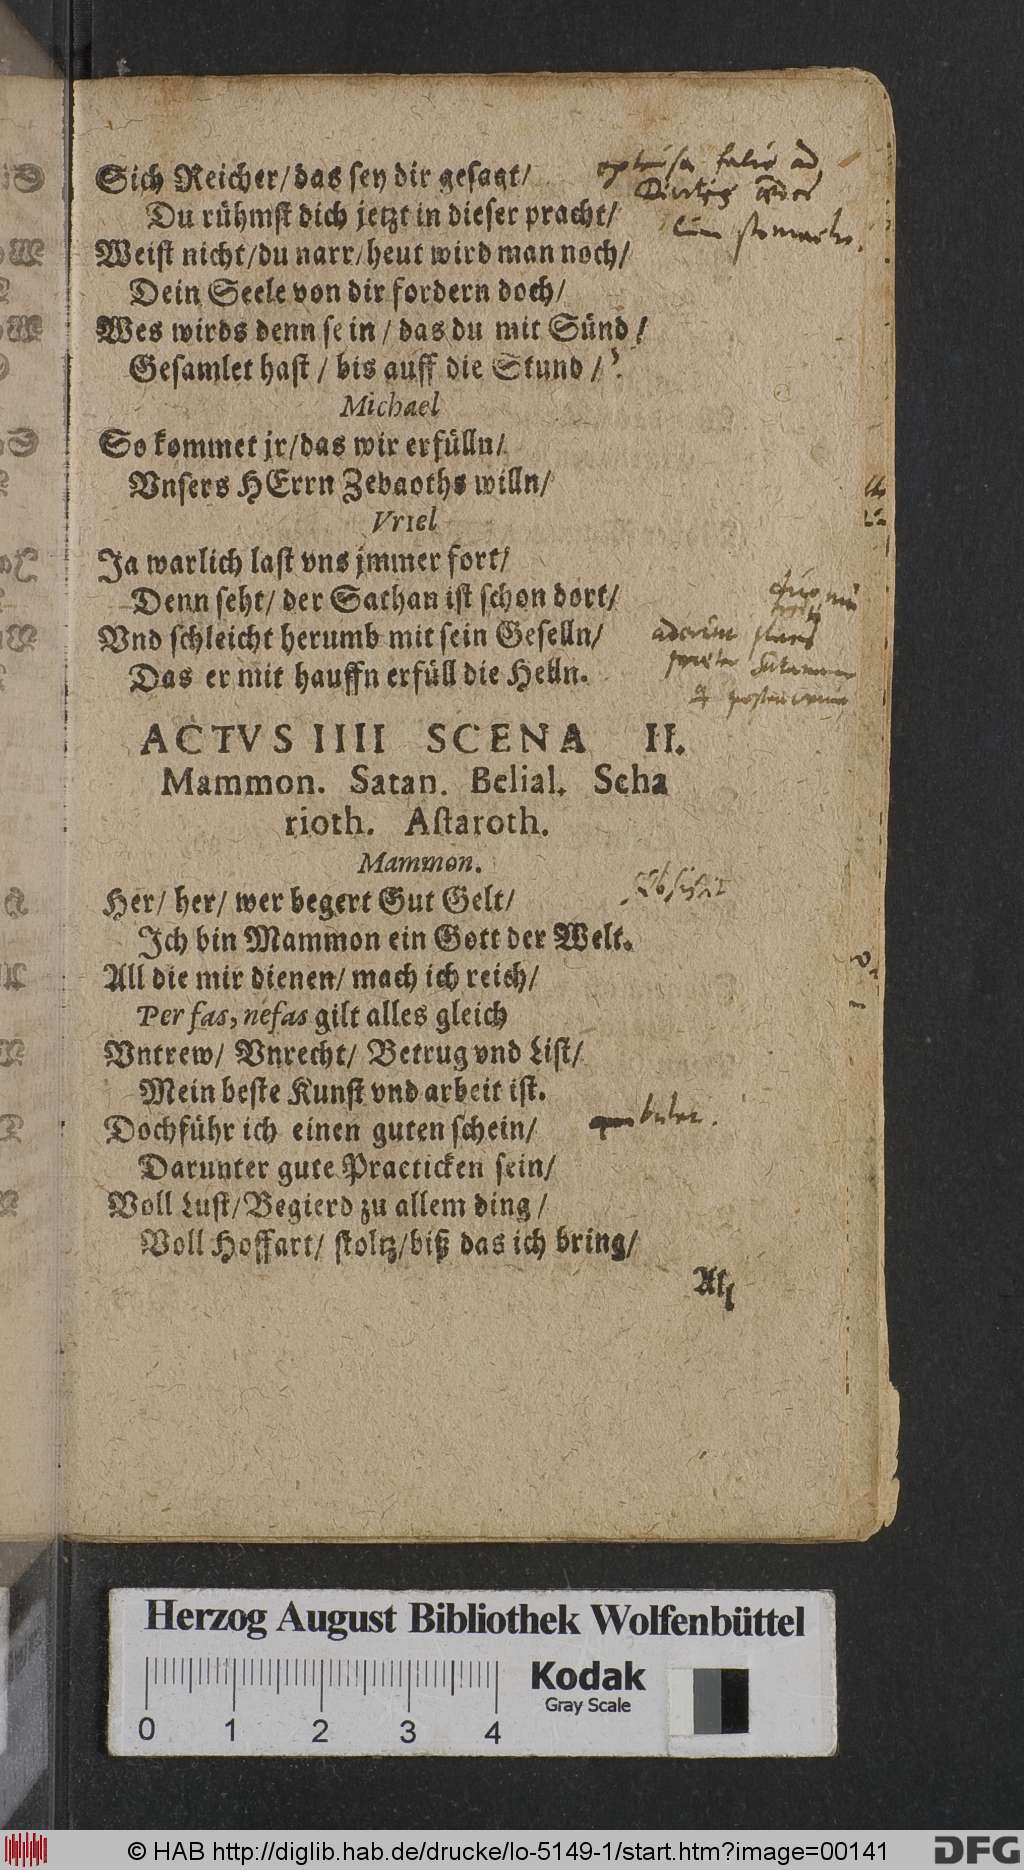 Sich Reicher/ das sey dir gesagt/
Du rühmst dich jetzt in dieser pracht/
Weist nicht/ du narr/ heut wird man noch/
Dein Seele von dir fordern doch/
Wes wirds denn sein / das du mit Sünd/
Gesamlet hast / bis auff die Stund /?
Michael
So kommet jr/ das wir erfülln/
Vnsers HErrn Zebaoths willn/
Vriel
Ja warlich last vns jmmer fort/
Denn seht/ der Sathan ist schon dort/
Vnd schleicht herumb mit sein Geselln/
Das er mit hauffn erfüll die Helln.
ACTVS IIII SCENA II.
Mammon. Satan. Belial. Scha
rioth. Astaroth.
Mammon.
Her/ her/ wer begert Gut Gelt/
Ich bin Mammon ein Gott der Welt.
All die mir dienen/ mach ich reich/
Per fas, nefas gilt alles gleich
Vntrew/ Vnrecht/ Betrug vnd List/
Mein beste Kunst vnd arbeit ist.
Doch führ ich einen guten schein/
Darunter gute Practicken sein/
Voll Lust/ Begierd zu allem ding /
Voll Hoffart/ stoltz/ biß das ich bring/
All
Herzog August Bibliothek Wolfenbüttel
Kodak
Gray Scale
0 1 2 3 4
© HAB http://diglib.hab.de/drucke/lo-5149-1/start.htm?image=00141
DFG